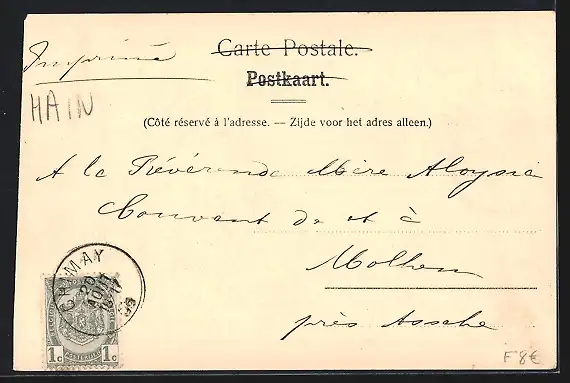 Imprimé
Carte Postale.
Postkaart.
HAIN
(Côté réservé à l'adresse. — Zijde voor het adres alleen.)
A la Révérende Mère Aloysia
Couvent de et à
Molhem
près Assche
CHIMAY
20
AOUT
1c 1c
F 8€